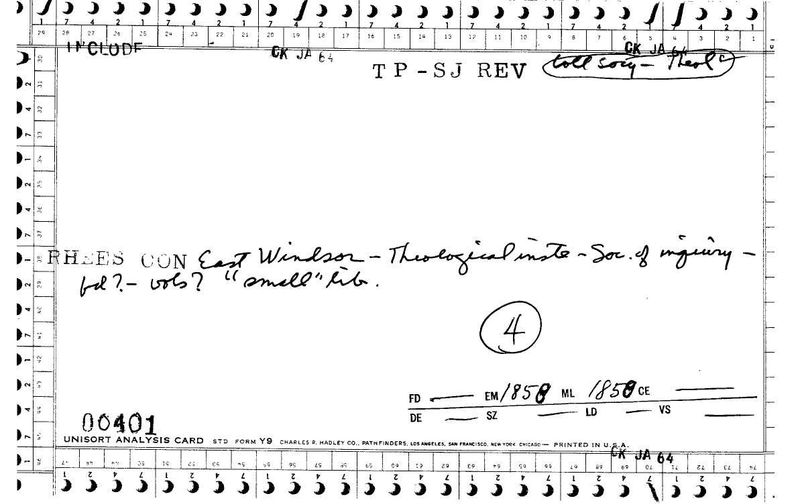 INCLUDE
CK JA 64
CK JA 64
TP-SJ REV
coll socy - Theol
RHEES CON East Windsor - Theological inste - Soc. of inquiry -
fd? - vols? "small" lib.
4
FD EM 1858 ML 1858 CE
DE SZ LD VS
00401
UNISORT ANALYSIS CARD STD FORM Y9 CHARLES R. HADLEY CO., PATHFINDERS, LOS ANGELES, SAN FRANCISCO, NEW YORK, CHICAGO — PRINTED IN U.S.A.
CK JA 64